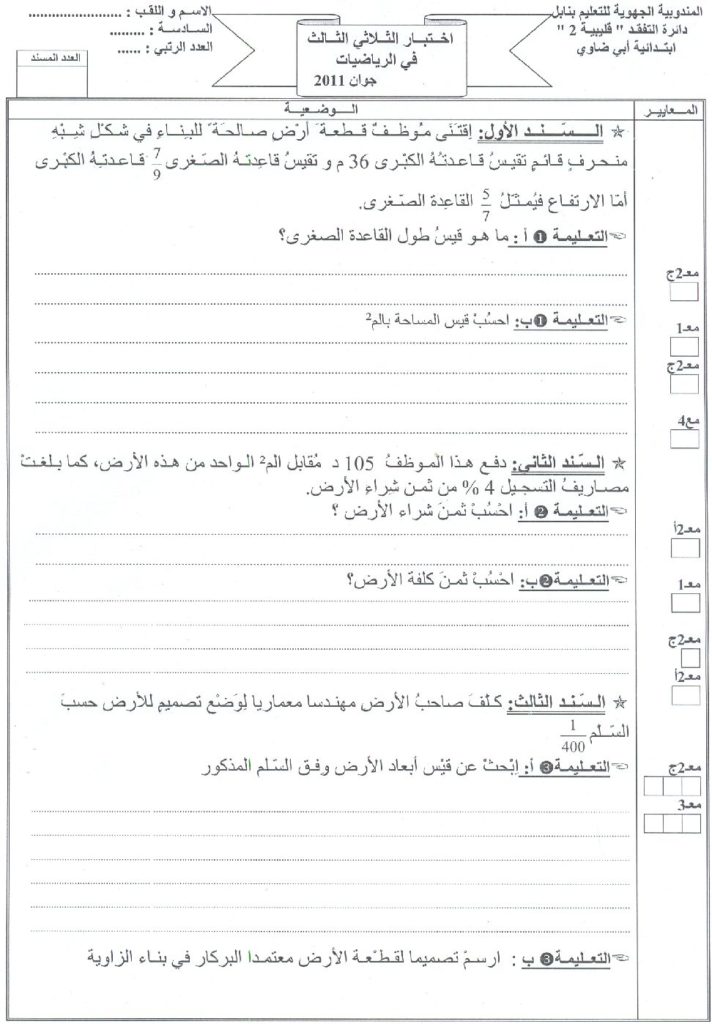 المندوبية الجهوية للتعليم بنابل
دائرة التفقد " قليبية 2 "
ابتدائية أبي ضاوي
اختبار الثلاثي الثالث
في الرياضيات
جوان 2011
الاسم و اللقب : ......................
السادسة : ..........
العدد الرتبي : ......
العدد المسند
المعايير
الوضعية
★ السّند الأول: اِقتَنَى مُوظفٌ قطعة أرْضٍ صالحَة للبِناءِ في شكْل شِبْهِ
منحرفٍ قائمٍ تقيسُ قاعدتهُ الكبْرى 36 م و تقيسُ قاعِدتهُ الصّغرى 7/9 قاعدتِهُ الكبْرى
أمّا الارتفاع فيُمثّلُ 5/7 القاعِدة الصّغرى.
التعليمة ❶ أ : ما هو قيسُ طول القاعدة الصغرى؟
معـ2ج
التعليمة ❶ب: احسُبْ قيس المساحة بالم²
معـ1
معـ2ج
معـ4
★ السّند الثاني: دفع هذا الموظفُ 105 د مُقابل الم² الواحد من هذه الأرض، كما بلغتْ
مصاريفُ التسجيل 4 % من ثمن شراء الأرض.
التعليمة ❷ أ: احْسُبْ ثمنَ شراء الأرض ؟
معـ2أ
التعليمة❷ب: احْسُبْ ثمنَ كلفة الأرض؟
معـ1
معـ2ج
معـ2أ
★ السّند الثالث: كلّفَ صاحبُ الأرض مهندسا معماريا لِوَضْع تصميمٍ للأرض حسبَ
السّلم 1/400
التعليمة❸ أ: اِبْحثْ عن قيْس أبعاد الأرض وفق السّلم المذكور
معـ2ج
معـ3
التعليمة❸ ب : ارسمْ تصميما لقطْعة الأرض معتمدا البركار في بناء الزاوية